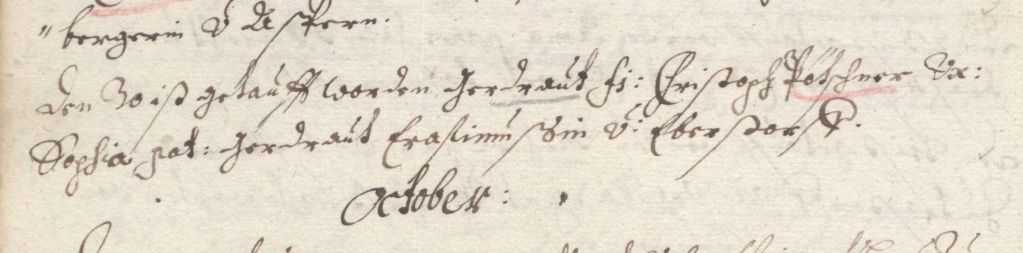 "bergerin v Aspern.
Den 30 ist getaufft worden. Gerdraut fi: Christoph Pötschner Vx:
Sophia pat: Gerdraut Erasimußin v: Eberstorff.
October: